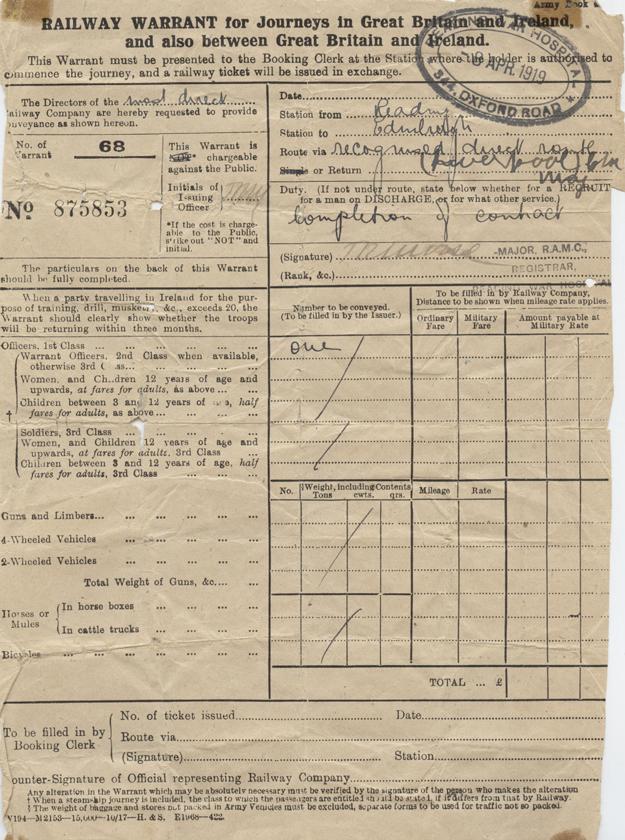 Army Book
RAILWAY WARRANT for Journeys in Great Britain and Ireland,
and also between Great Britain and Ireland.
This Warrant must be presented to the Booking Clerk at the Station where the holder is authorised to
commence the journey, and a railway ticket will be issued in exchange.
WAR HOSPITAL
APR. 1919
344, OXFORD ROAD
The Directors of the most direct
Railway Company are hereby requested to provide
conveyance as shown hereon.
No. of Warrant 68
No 875853
This Warrant is
NOT chargeable
against the Public.
Initials of
Issuing
Officer
*If the cost is charge-
able to the Public,
strike out "NOT" and
initial.
The particulars on the back of this Warrant
should be fully completed.
Date
Station from Reading
Station to Edinburgh
Route via recognised direct route
Single or Return (Liverpool)
Duty. (If not under route, state below whether for a RECRUIT
for a man on DISCHARGE, or for what other service.)
Completion of contract
(Signature)
MAJOR, R.A.M.C.,
REGISTRAR,
(Rank, &c.) WAR HOSPITAL
When a party travelling in Ireland for the pur-
pose of training, drill, musketry, &c., exceeds 20, the
Warrant should clearly show whether the troops
will be returning within three months.
Number to be conveyed.
(To be filled in by the Issuer.)
To be filled in by Railway Company,
Distance to be shown when mileage rate applies.
Ordinary Fare
Military Fare
Amount payable at Military Rate
Officers, 1st Class ... one
Warrant Officers, 2nd Class when available,
otherwise 3rd Class ...
Women, and Children 12 years of age and
upwards, at fares for adults, as above ...
Children between 3 and 12 years of age, half
fares for adults, as above ...
†
Soldiers, 3rd Class ...
Women, and Children 12 years of age and
upwards, at fares for adults, 3rd Class ...
Children between 3 and 12 years of age, half
fares for adults, 3rd Class ...
No.
‡Weight, including Contents
Tons cwts. qrs.
Mileage
Rate
Guns and Limbers ...
4-Wheeled Vehicles ...
2-Wheeled Vehicles ...
Total Weight of Guns, &c. ...
Horses or Mules
In horse boxes ...
In cattle trucks ...
Bicycles ...
TOTAL ... £
To be filled in by
Booking Clerk
No. of ticket issued Date
Route via
(Signature) Station
Counter-Signature of Official representing Railway Company
Any alteration in the Warrant which may be absolutely necessary must be verified by the signature of the person who makes the alteration
† When a steamship journey is included, the class to which the passengers are entitled should be stated, if it differs from that by Railway.
‡ The weight of baggage and stores not packed in Army Vehicles must be excluded, separate forms to be used for traffic not so packed.
V194—M2153—15,000—10/17—H. & S. E1968—422.